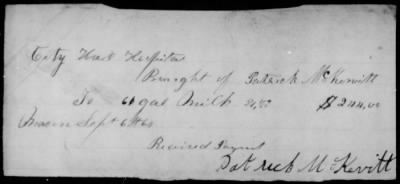 City Hall Hospital
Bought of Patrick McKevitt
To 61 gal Milk 4,00 $244,00
Macon Sept 6th 64
Received Payment
Patrick McKevitt